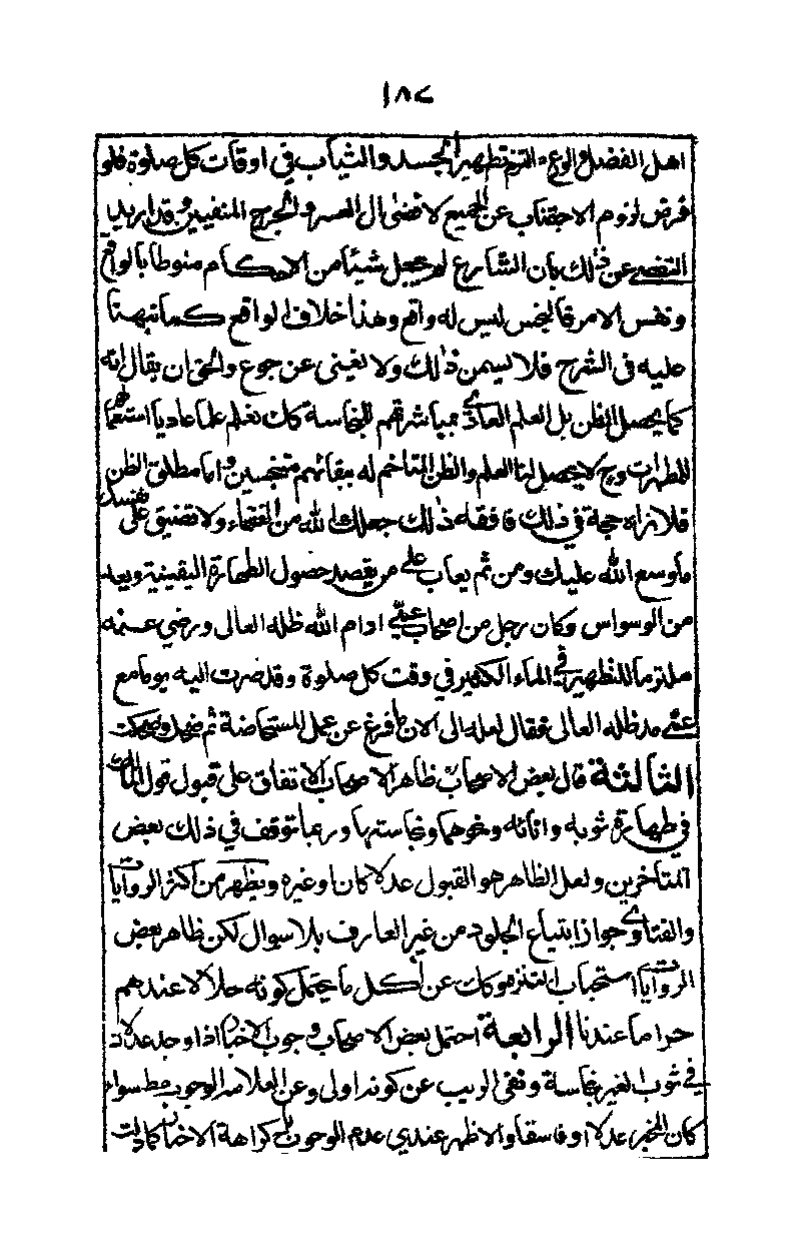 ١٨٧
اهل الفضل والورع التزم تطهير الجسد والثياب في اوقات كل صلوة فلو
فرض لزوم الاجتناب عن الجميع لافضى ال العسر والحرج المنفيين وقد اريد
التفصي عن ذلك بان الشارع لم يجعل شيئا من الاحكام منوطا بالواقع
ونفس الامر فالنجس ليس له واقع وهذا خلاف الواقع كما نبهنا
عليه في الشرح فلا يسمن ذلك ولا يغنى عن جوع والحق ان يقال انه
كما يحصل الظن بل العلم العادي بمباشرتهم للنجاسة كك نعلم علما عاديا استعمالهم
للمطهرات وح لا يحصل لنا العلم والظن المتاخم له ببقائهم متنجسين واما مطلق الظن
فلا نراه حجة في ذلك فافقه ذلك جعلك الله من الفقهاء ولا تضيق على نفسك
ما وسع الله عليك ومن ثم يعاب على من يقصد حصول الطهارة اليقينية ويعد
من الوسواس وكان رجل من اصحاب عمي ادام الله ظله العالى ورضي عنه
ملتزما للتطهير في الماء الكثير في وقت كل صلوة وقد صرت اليه يوما مع
عمي مد ظله العالى فقال لعله الى الان ما فرغ عن عمل المستحاضة ثم ضحك وضحكت
الثالثة قال بعض الاصحاب ظاهر الاصحاب الاتفاق على قبول قول المالك
في طهارة ثوبه وانائه ونحوهما ونجاستها وربما توقف في ذلك بعض
المتاخرين ولعل الظاهر هو القبول عدلا كان او غيره ويظهر من اكثر الروايات
والفتاوى جواز ابتياع الجلود من غير العارف بلا سوال لكن ظاهر بعض
الروايات استحباب التنزه وكك عن اكل ما يحتمل كونه حلالا عندهم
حراما عندنا الرابعة احتمل بعض الاصحاب وجوب الاخبار اذا وجد عدلا
في ثوب الغير نجاسة ونفى الريب عن كونه اولى وعن العلامة الوجوب مط سواء
كان المخبر عدلا او فاسقا والاظهر عندي عدم الوجوب بل كراهة الاخبار كما دلت